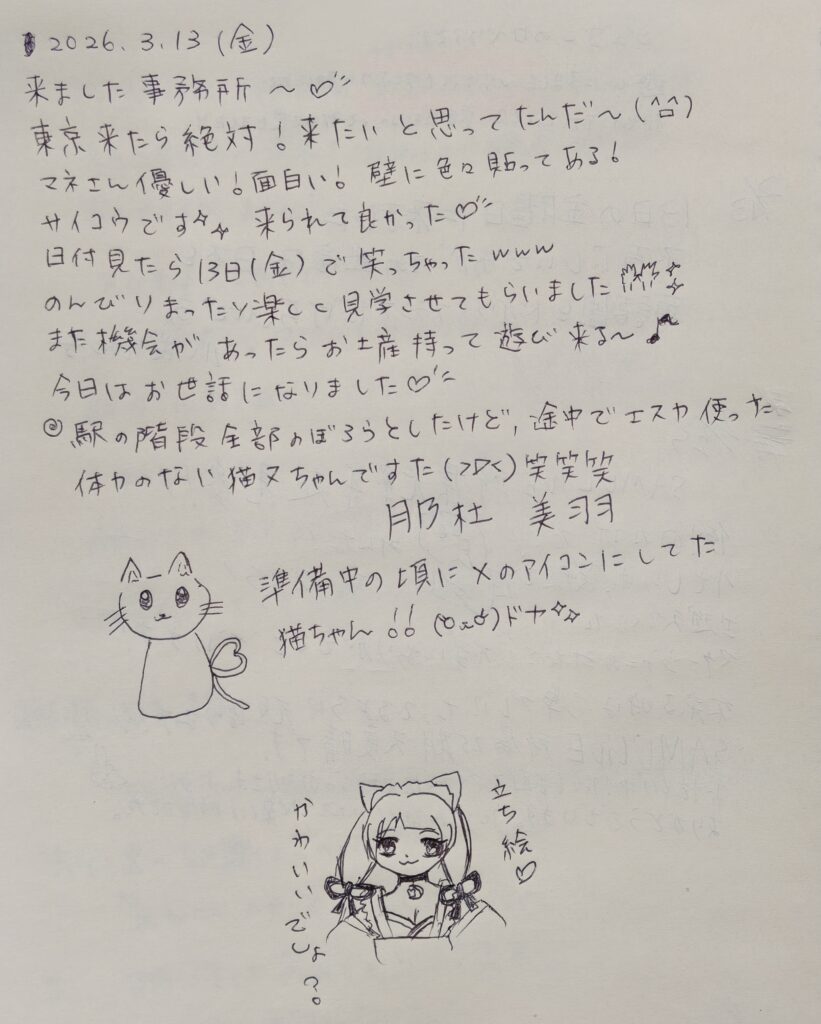 2026.3.13(金)
来ました事務所〜♡
東京来たら絶対！来たいと思ってたんだ〜(^ロ^)
マネさん優しい！面白い！壁に色々貼ってある！
サイコウです✧✧ 来られて良かった♡
日付見たら13日(金)で笑っちゃったwww
のんびりまったり楽しく見学させてもらいました
また機会があったらお土産持って遊び来る〜♪
今日はお世話になりました♡
◎駅の階段全部のぼろうとしたけど,途中でエスカ使った
体力のない猫又ちゃんですた(>▽<)笑笑笑
服杜 美羽
準備中の頃にXのアイコンにしてた
猫ちゃん!! ドヤ✧✧
立ち絵♡
かわいいでしょ？